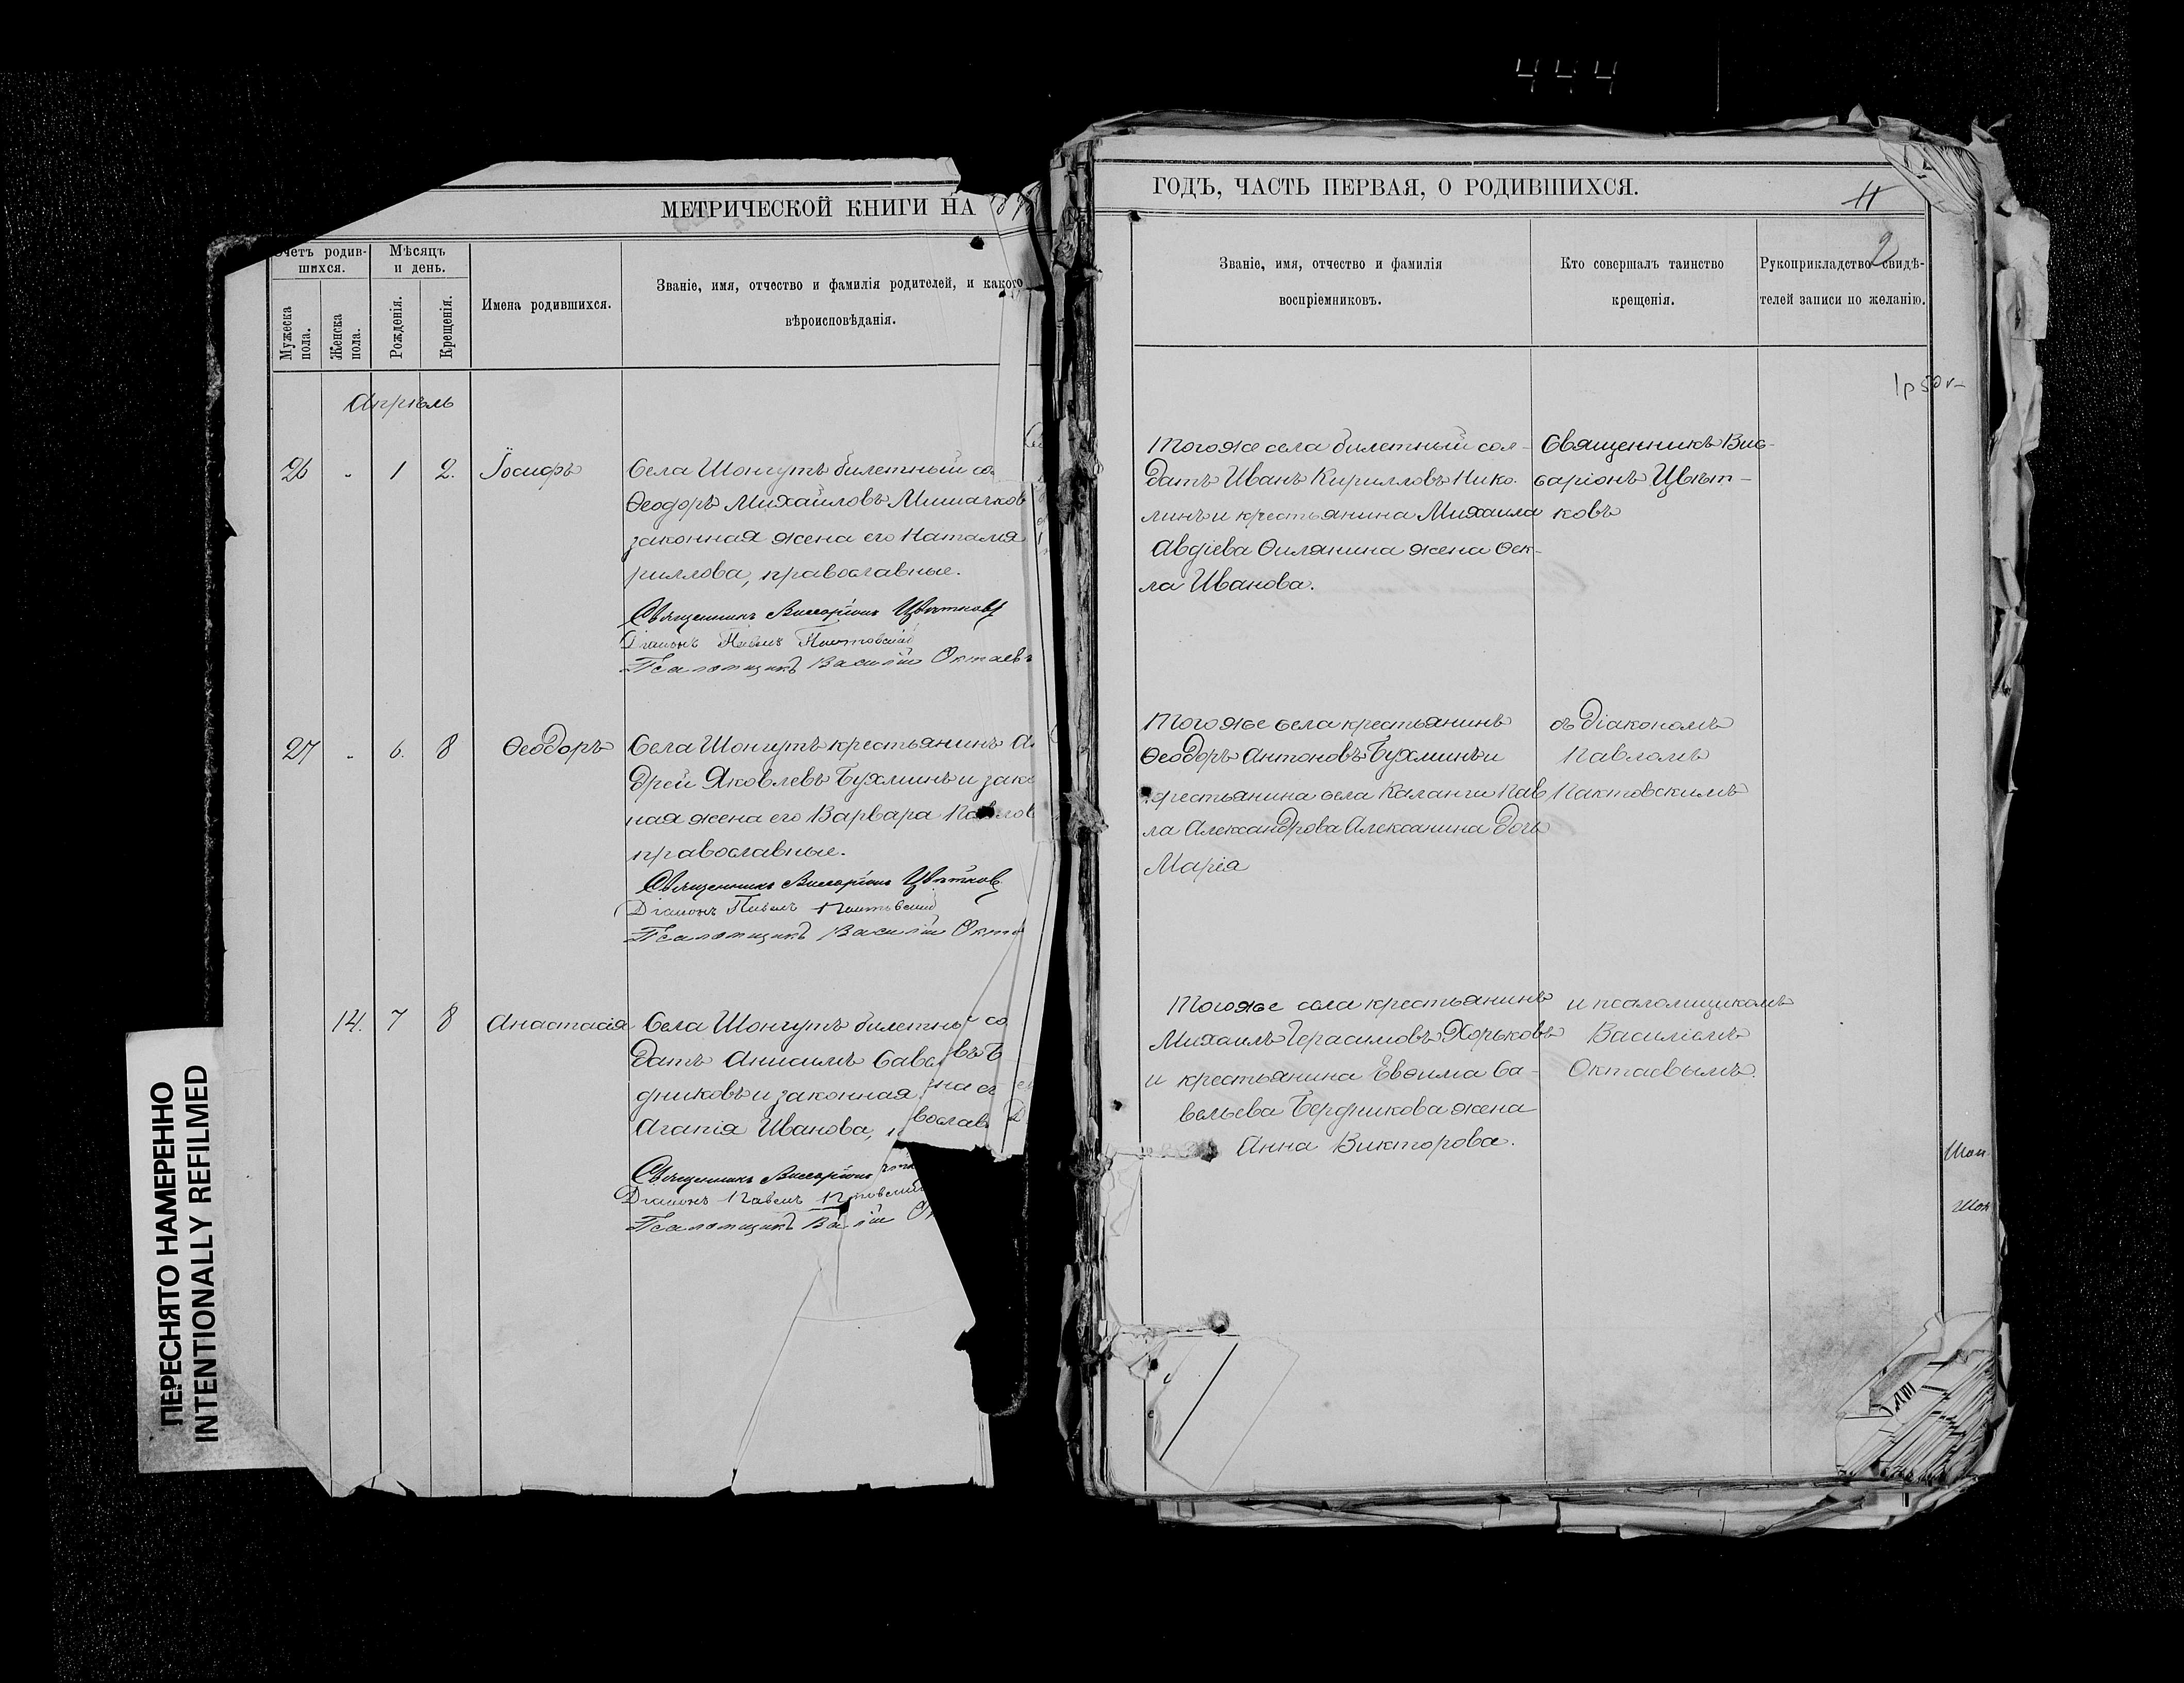 444
МЕТРИЧЕСКОЙ КНИГИ НА 187
Счетъ родив-
шихся.
Мужеска
пола.
Женска
пола.
Мѣсяцъ
и день.
Рожденія.
Крещенія.
Имена родившихся.
Званіе, имя, отчество и фамилія родителей, и какого
вѣроисповѣданія.
Апрѣль
26 - 1 2. Іосифъ
Села Шонгутъ билетный сол
Ѳеодоръ Михайловъ Мишачков
законная жена его Наталія
риллова, православные.
Священникъ Виссаріонъ Цвѣтковъ
Діаконъ Павелъ Пактовскій
Псаломщикъ Василій Октаевъ
27 - 6. 8 Ѳеодоръ
Села Шонгутъ крестьянинъ Ан
дрей Яковлевъ Бухминъ и зако
ная жена его Варвара Павлов
православные.
Священникъ Виссаріонъ Цвѣтковъ
Діаконъ Павелъ Пактовскій
Псаломщикъ Василій Окта
14. 7 8 Анастасія
Села Шонгутъ билетные со
датъ Анисимъ Савел въ Б
дниковъ и законная на ег
Агапія Иванова, вослав
Священникъ Виссаріонъ
Діаконъ Павелъ П товскій
Псаломщикъ Ва ій Ок
ГОДЪ, ЧАСТЬ ПЕРВАЯ, О РОДИВШИХСЯ.
11
2
Званіе, имя, отчество и фамилія
воспріемниковъ.
Кто совершалъ таинство
крещенія.
Рукоприкладство свидѣ-
телей записи по желанію.
1р 50к
Тогоже села билетный сол-
датъ Иванъ Кирилловъ Нико-
линъ и крестьянина Михаила
Авдіева Ѳилянина жена Ѳек-
ла Иванова.
Священникъ Вис-
саріонъ Цвѣт-
ковъ
Тогоже села крестьянинъ
Ѳеодоръ Антоновъ Бухминъ и
крестьянина села Каланги Пав
ла Александрова Алексанина дочь
Марія
съ Діакономъ
Павломъ
Пактовскимъ
Тогоже села крестьянинъ
Михаилъ Герасимовъ Хорьковъ
и крестьянина Евѳима Са-
вельева Бердникова жена
Анна Викторова.
и псаломщикомъ
Василіемъ
Октаевымъ.
Шон
Шон
ПЕРЕСНЯТО НАМЕРЕННО
INTENTIONALLY REFILMED